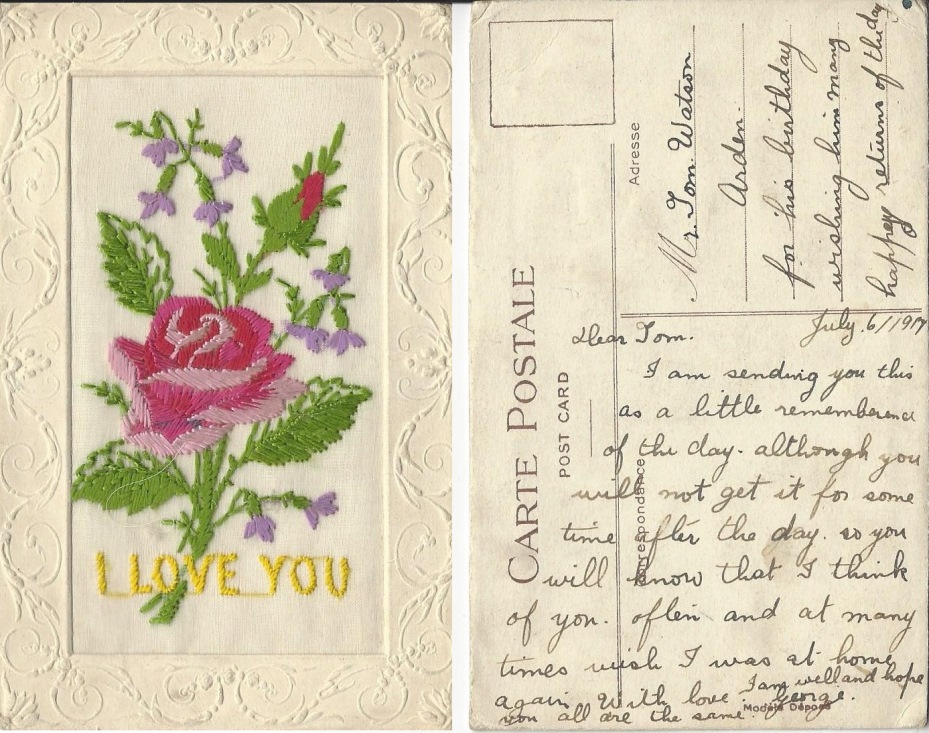 I LOVE YOU
CARTE POSTALE
POST CARD
Adresse
Mr. Tom Watson
Arden.
for his birthday
wishing him many
happy returns of the day
Correspondance
July. 6/1917
Dear Tom.
I am sending you this
as a little rememberence
of the day. although you
will not get it for some
time after the day. so you
will know that I think
of you. often and at many
times wish I was at home
again. With love George.
I am well and hope
you all are the same.
Modèle Déposé